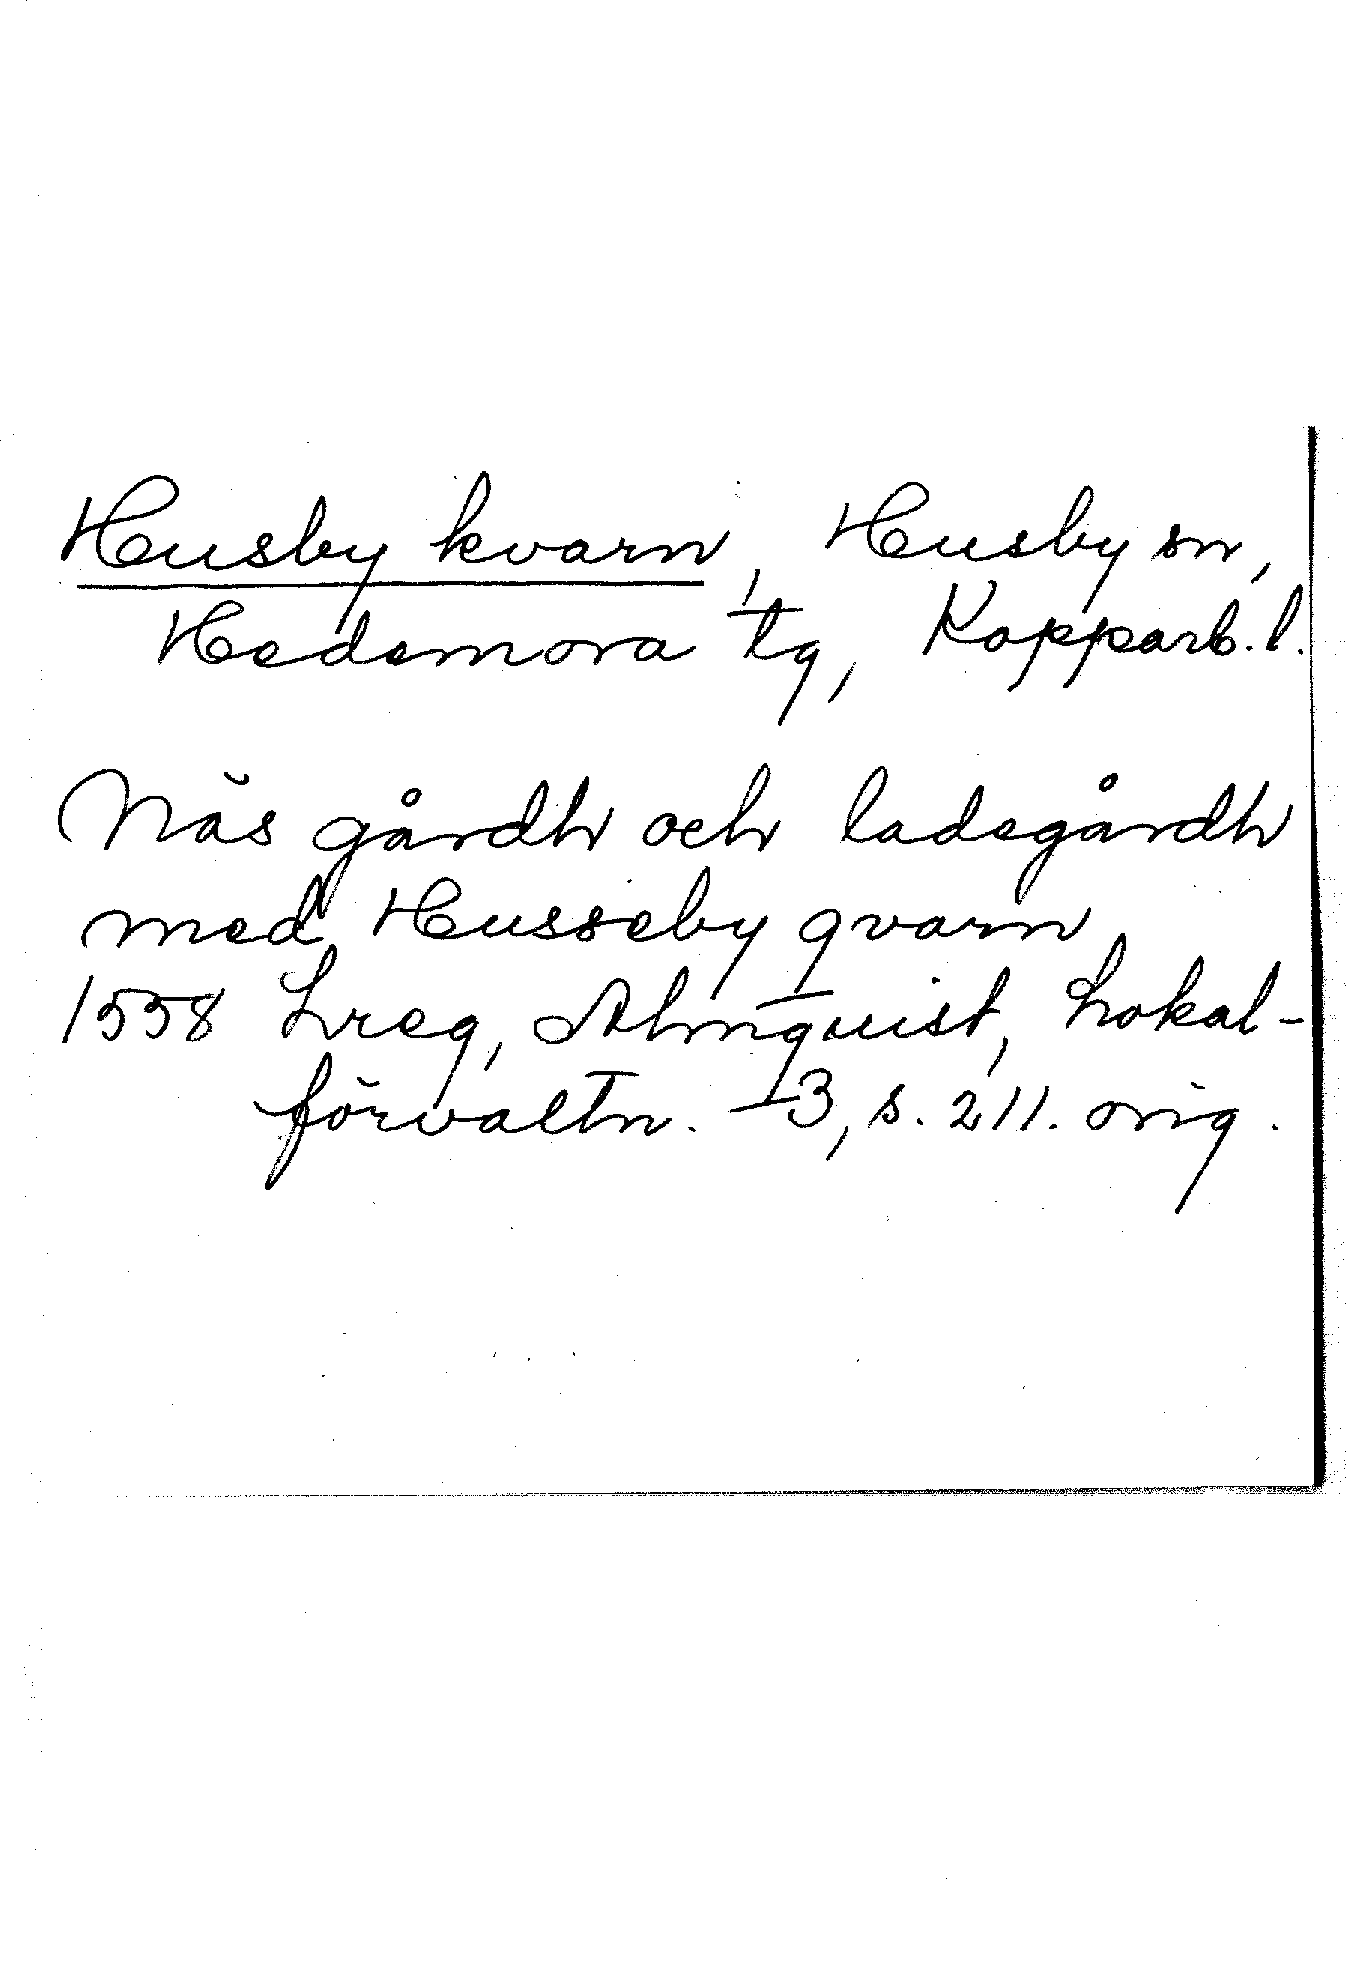 Husby kvarn, Husby sn,
Hedemora tg, Kopparb. l.
Näs gårdh och ladegårdh
med Husseby qvarn
1558 Lreg, Almquist, Lokal-
förvaltn. I3, s. 211. orig.